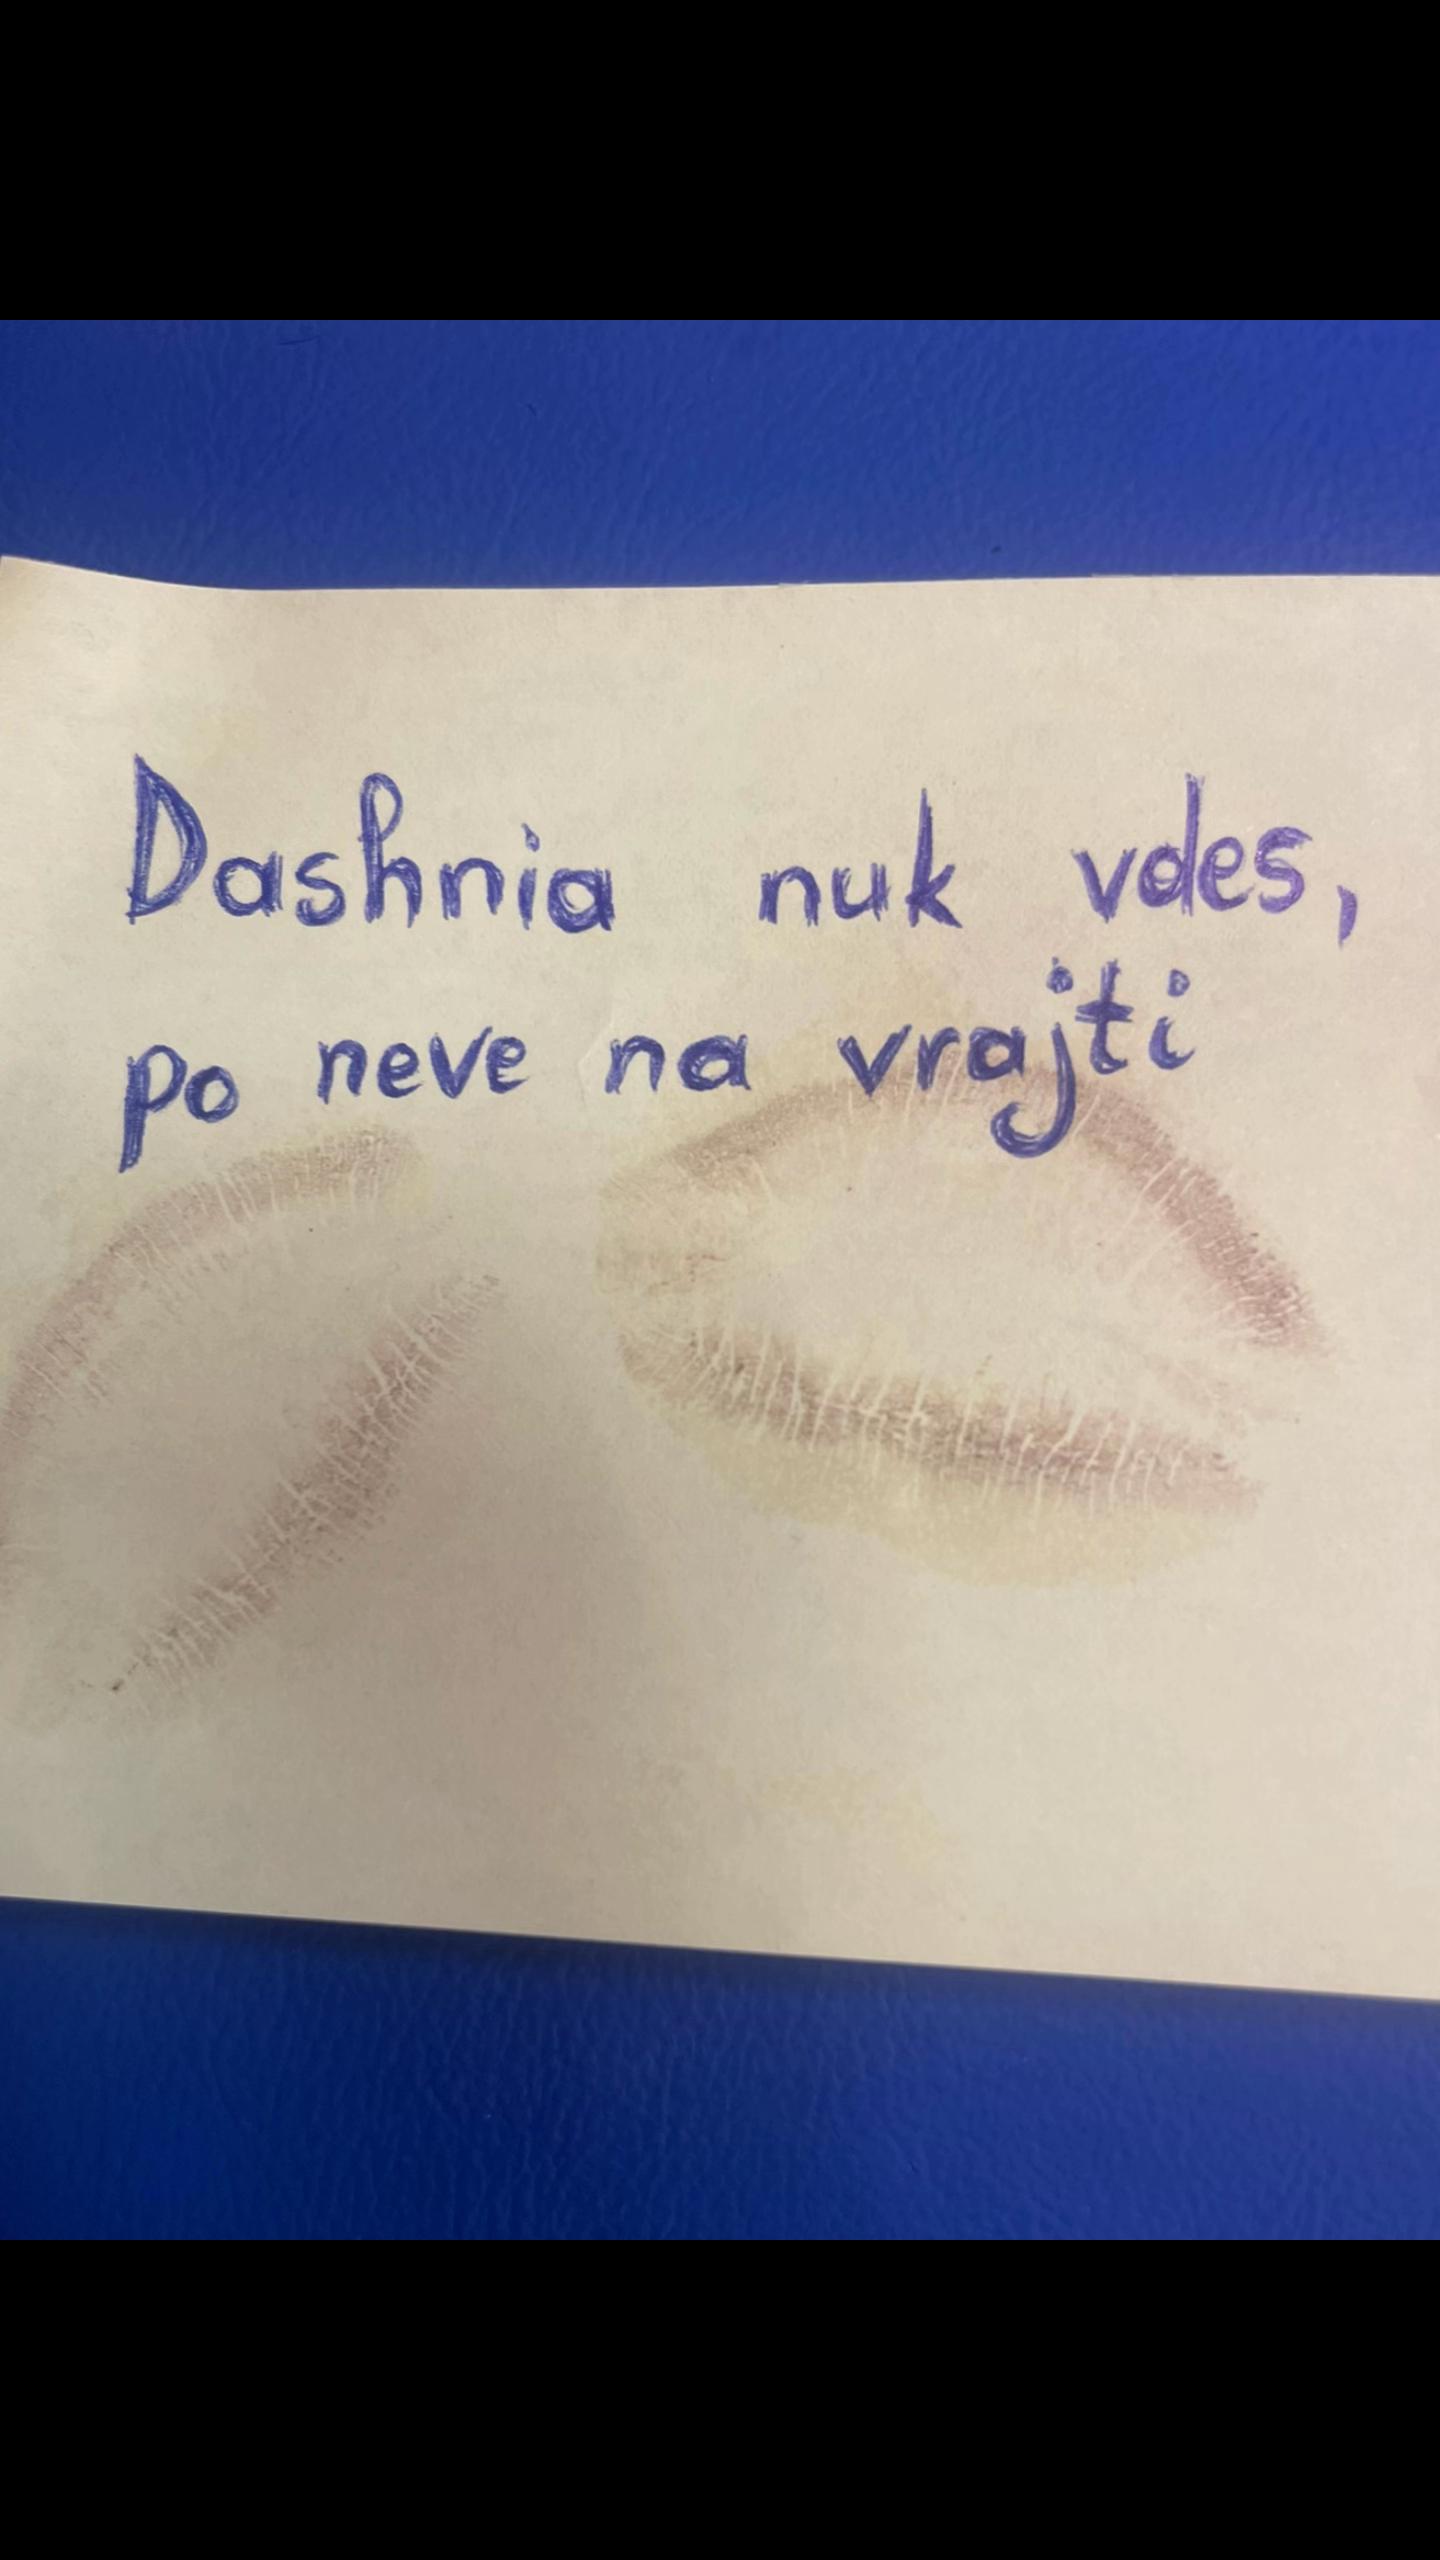 Dashnia nuk vdes,
po neve na vrajti